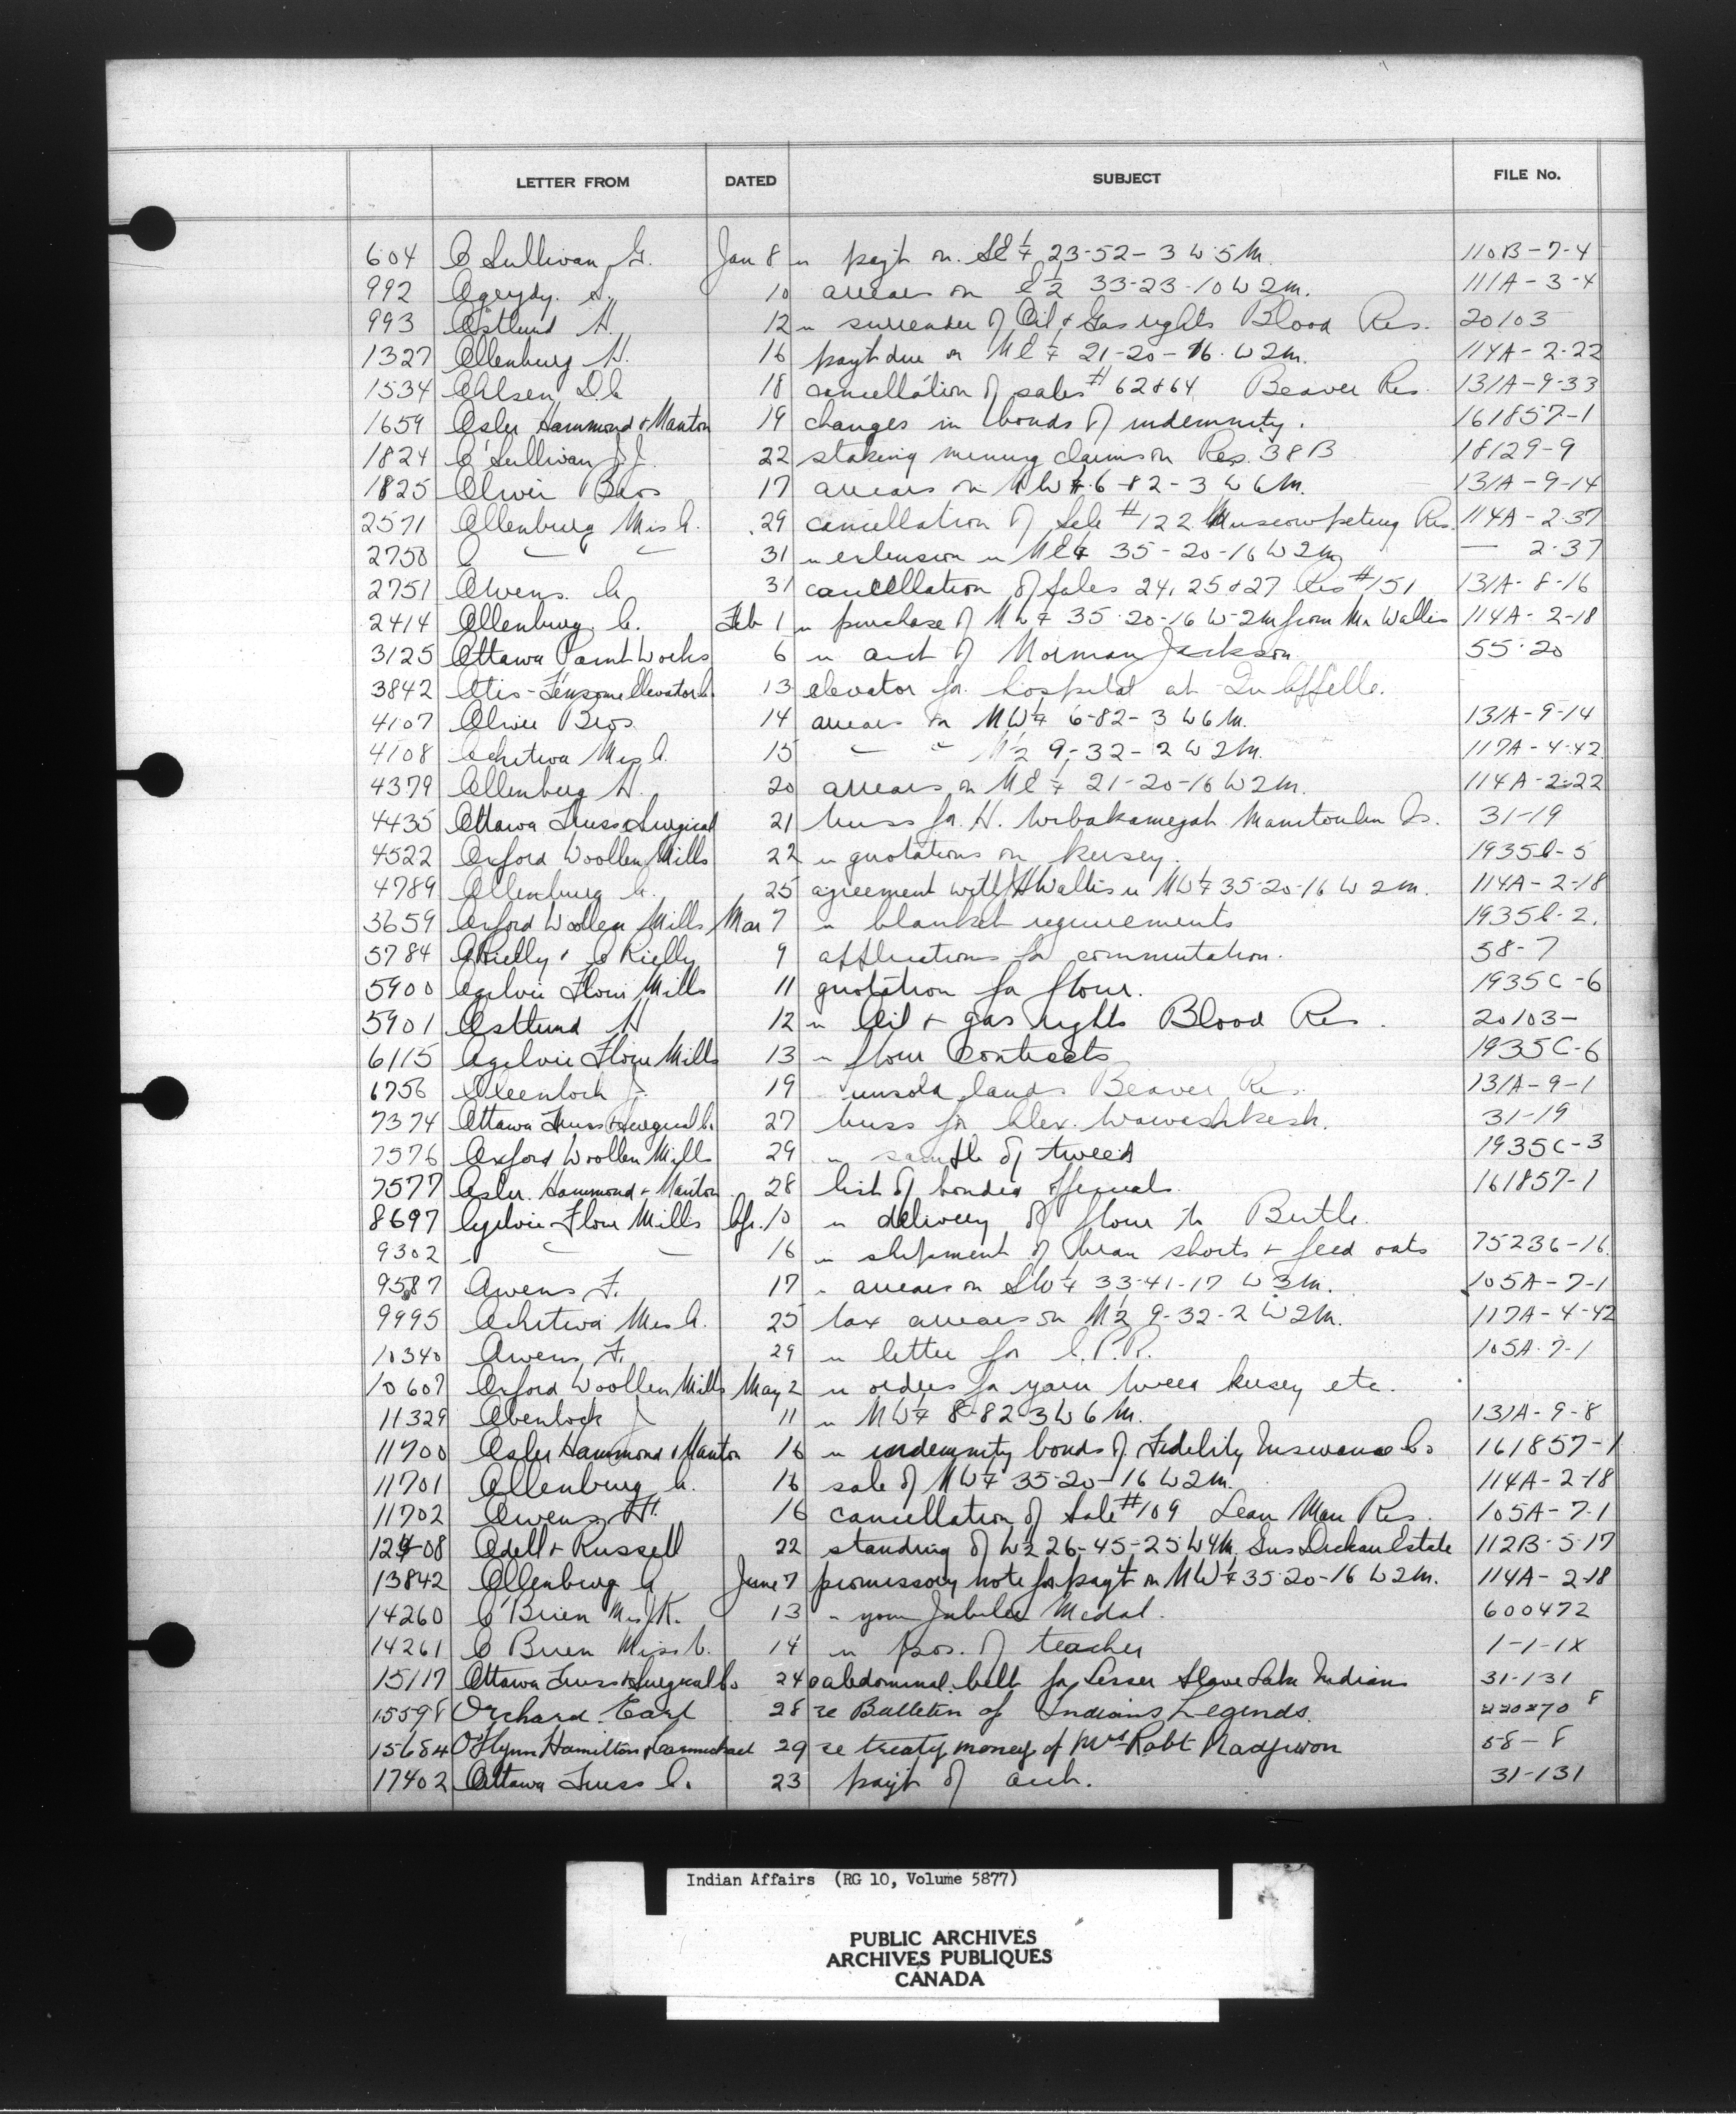 LETTER FROM DATED SUBJECT FILE No.
604 O Sullivan G. Jan 8 re payt on SE¼ 23-52-3 W5M. 110B-7-4
992 10 arrears on E½ 33-23-10 W2M. 111A-3-4
993 Ostlund H. 12 re surrender of Oil & Gas rights Blood Res. 20103
1327 Ollenburg H. 16 payt due on NE¼ 21-20-16. W2M. 114A-2-22
1534 Ohlsen D.C. 18 cancellation of sales # 62&64 Beaver Res. 131A-9-33
1659 Osler Hammond & Nanton 19 changes in bonds of indemnity. 161857-1
1824 O'Sullivan J.J. 22 staking mining claims on Res. 38B 18129-9
1825 Oliver Bros 17 arrears on NW¼ 6-82-3 W6M. 131A-9-14
2571 Ollenburg Mrs A. 29 cancellation of Sale #122 Muscowpetung Res. 114A-2-37
2750 O 31 re extension re NE¼ 35-20-16 W2M — 2-37
2751 Owens. C. 31 cancellation of Sales 24, 25 & 27 Res #151 131A-8-16
2414 Ollenburg C. Feb 1 re purchase of NW¼ 35-20-16 W-2M from Mr Wallis 114A-2-18
3125 Ottawa Paint Works 6 re acct of Norman Jackson 55-20
3842 Otis-Fensom Elevator Co. 13 elevator for hospital at Qu'Appelle.
4107 Oliver Bros 14 arrears on NW¼ 6-82-3 W6M. 131A-9-14
4108 Ochitwa Mrs A. 15 " " N½ 9-32-2 W2M. 117A-4-42
4379 Ollenburg H. 20 arrears on NE¼ 21-20-16 W2M. 114A-2-22
4435 Ottawa Truss & Surgical 21 truss for H. Manitoulin Is. 31-19
4522 Oxford Woollen Mills 22 re quotations on kersey. 1935C-5
4789 Ollenburg C. 25 agreement with H Wallis re NW¼ 35-20-16 W2M. 114A-2-18
3659 Oxford Woollen Mills Mar 7 re blanket requirements 1935C-2.
5784 O'Rielly & O'Rielly 9 applications for commutation. 58-7
5900 Ogilvie Flour Mills 11 quotation for flour. 1935C-6
5901 Ostlund H 12 re Oil & gas rights Blood Res. 20103-
6115 Ogilvie Flour Mills 13 re flour contracts 1935C-6
6756 J. 19 unsold lands Beaver Res. 131A-9-1
7374 Ottawa Truss & Surgical Co. 27 truss for Alex. Wawashkesh. 31-19
7576 Oxford Woollen Mills 29 re sample of tweed 1935C-3
7577 Osler. Hammond & Nanton 28 list of bonded officials. 161857-1
8697 Ogilvie Flour Mills Apr. 10 re delivery of flour to Birtle.
9302 " " 16 re shipment of bran shorts & feed oats 75236-16.
9587 Owens F. 17 re arrears on SW¼ 33-41-17 W3M. 105A-7-1
9995 Ochitwa Mrs A. 25 tax arrears on N½ 9-32-2 W2M. 117A-4-42
10340 Owens F. 29 re letter for C.P.R. 105A-7-1
10607 Oxford Woollen Mills May 2 re orders for yarn tweed kersey etc.
11329 Obenlock J 11 re NW¼ 8-82-3 W6M. 131A-9-8
11700 Osler Hammond & Nanton 16 re indemnity bonds of Fidelity Insurance Co 161857-1
11701 Ollenburg C. 16 sale of NW¼ 35-20-16 W2M. 114A-2-18
11702 Owens F. 16 cancellation of Sale #109 Lean Man Res. 105A-7-1
12408 Odell & Russell 22 standing of W½ 26-45-25 W4M. Estate 112B-5-17
13842 Ollenburg C June 7 promissory note for payt on NW¼ 35-20-16 W2M. 114A-2-18
14260 O'Brien Mrs K. 13 re your Jubilee Medal. 600472
14261 O Brien Miss C. 14 re pos. of teacher 1-1-1X
15117 Ottawa Truss & Surgical Co 24 abdominal belt for Lesser Slave Lake Indian 31-131
15598 Orchard. Earl 28 re Bulletin of Indians Legends. 220270 8
15684 O'Flynn Hamilton & Carmichael 29 re treaty money of Mrs Robt Nadjiwon 58-8
17402 Ottawa Truss Co. 23 payt of acct. 31-131
Indian Affairs (RG 10, Volume 5877)
PUBLIC ARCHIVES
ARCHIVES PUBLIQUES
CANADA